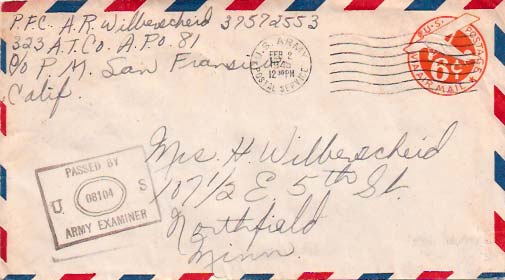 P.F.C. A.R. Wilberscheid 37572553
323 A.T.Co. A.P.O. 81
c/o P.M. San Fransisco
Calif.
U.S. ARMY
FEB 2
1945
12 30PM
POSTAL SERVICE
U.S. POSTAGE
6¢
VIA AIR MAIL
PASSED BY
U 08104 S
ARMY EXAMINER
Mrs. H. Wilberscheid
107 1/2 E 5th St.
Northfield
Minn.